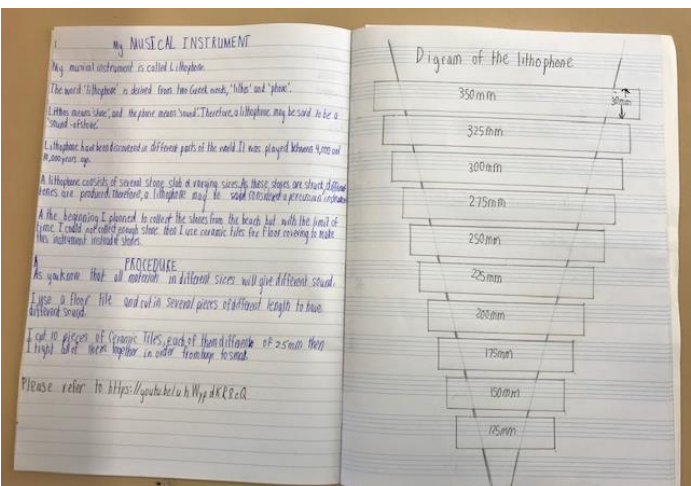 My MUSICAL INSTRUMENT
My musical instrument is called Lithophone.
The word 'lithophone' is derived from two Greek words, 'lithos' and 'phone'.
Lithos means 'stone', and the phone means 'sound'. Therefore, a lithophone may be said to be a
'sound-of stone'.
Lithophone have been discovered in different parts of the world. It was played between 4,000 and
10,000 years ago.
A lithophone consists of several stone slab of varying sizes. As these stones are struck, different
tones are produced. Therefore, a lithophone may be considered a percussion instrument
A the beginning I planned to collect the stones from the beach but with the limit of
time I could not collect enough stone. then I use ceramic tiles for floor covering to make
this instrument instead of stones.
PROCEDURE
As you know that all materials in different sizes will give different sound.
I use a floor tile and cut in several pieces of different length to have
different sound.
I cut 10 pieces of Ceramic Tiles, each of them difference of 25mm then
I tight all of them together in order from large to small.
Please refer to
Digram of the lithophone
350mm
30mm
325mm
300mm
275mm
250mm
225mm
200mm
175mm
150mm
125mm